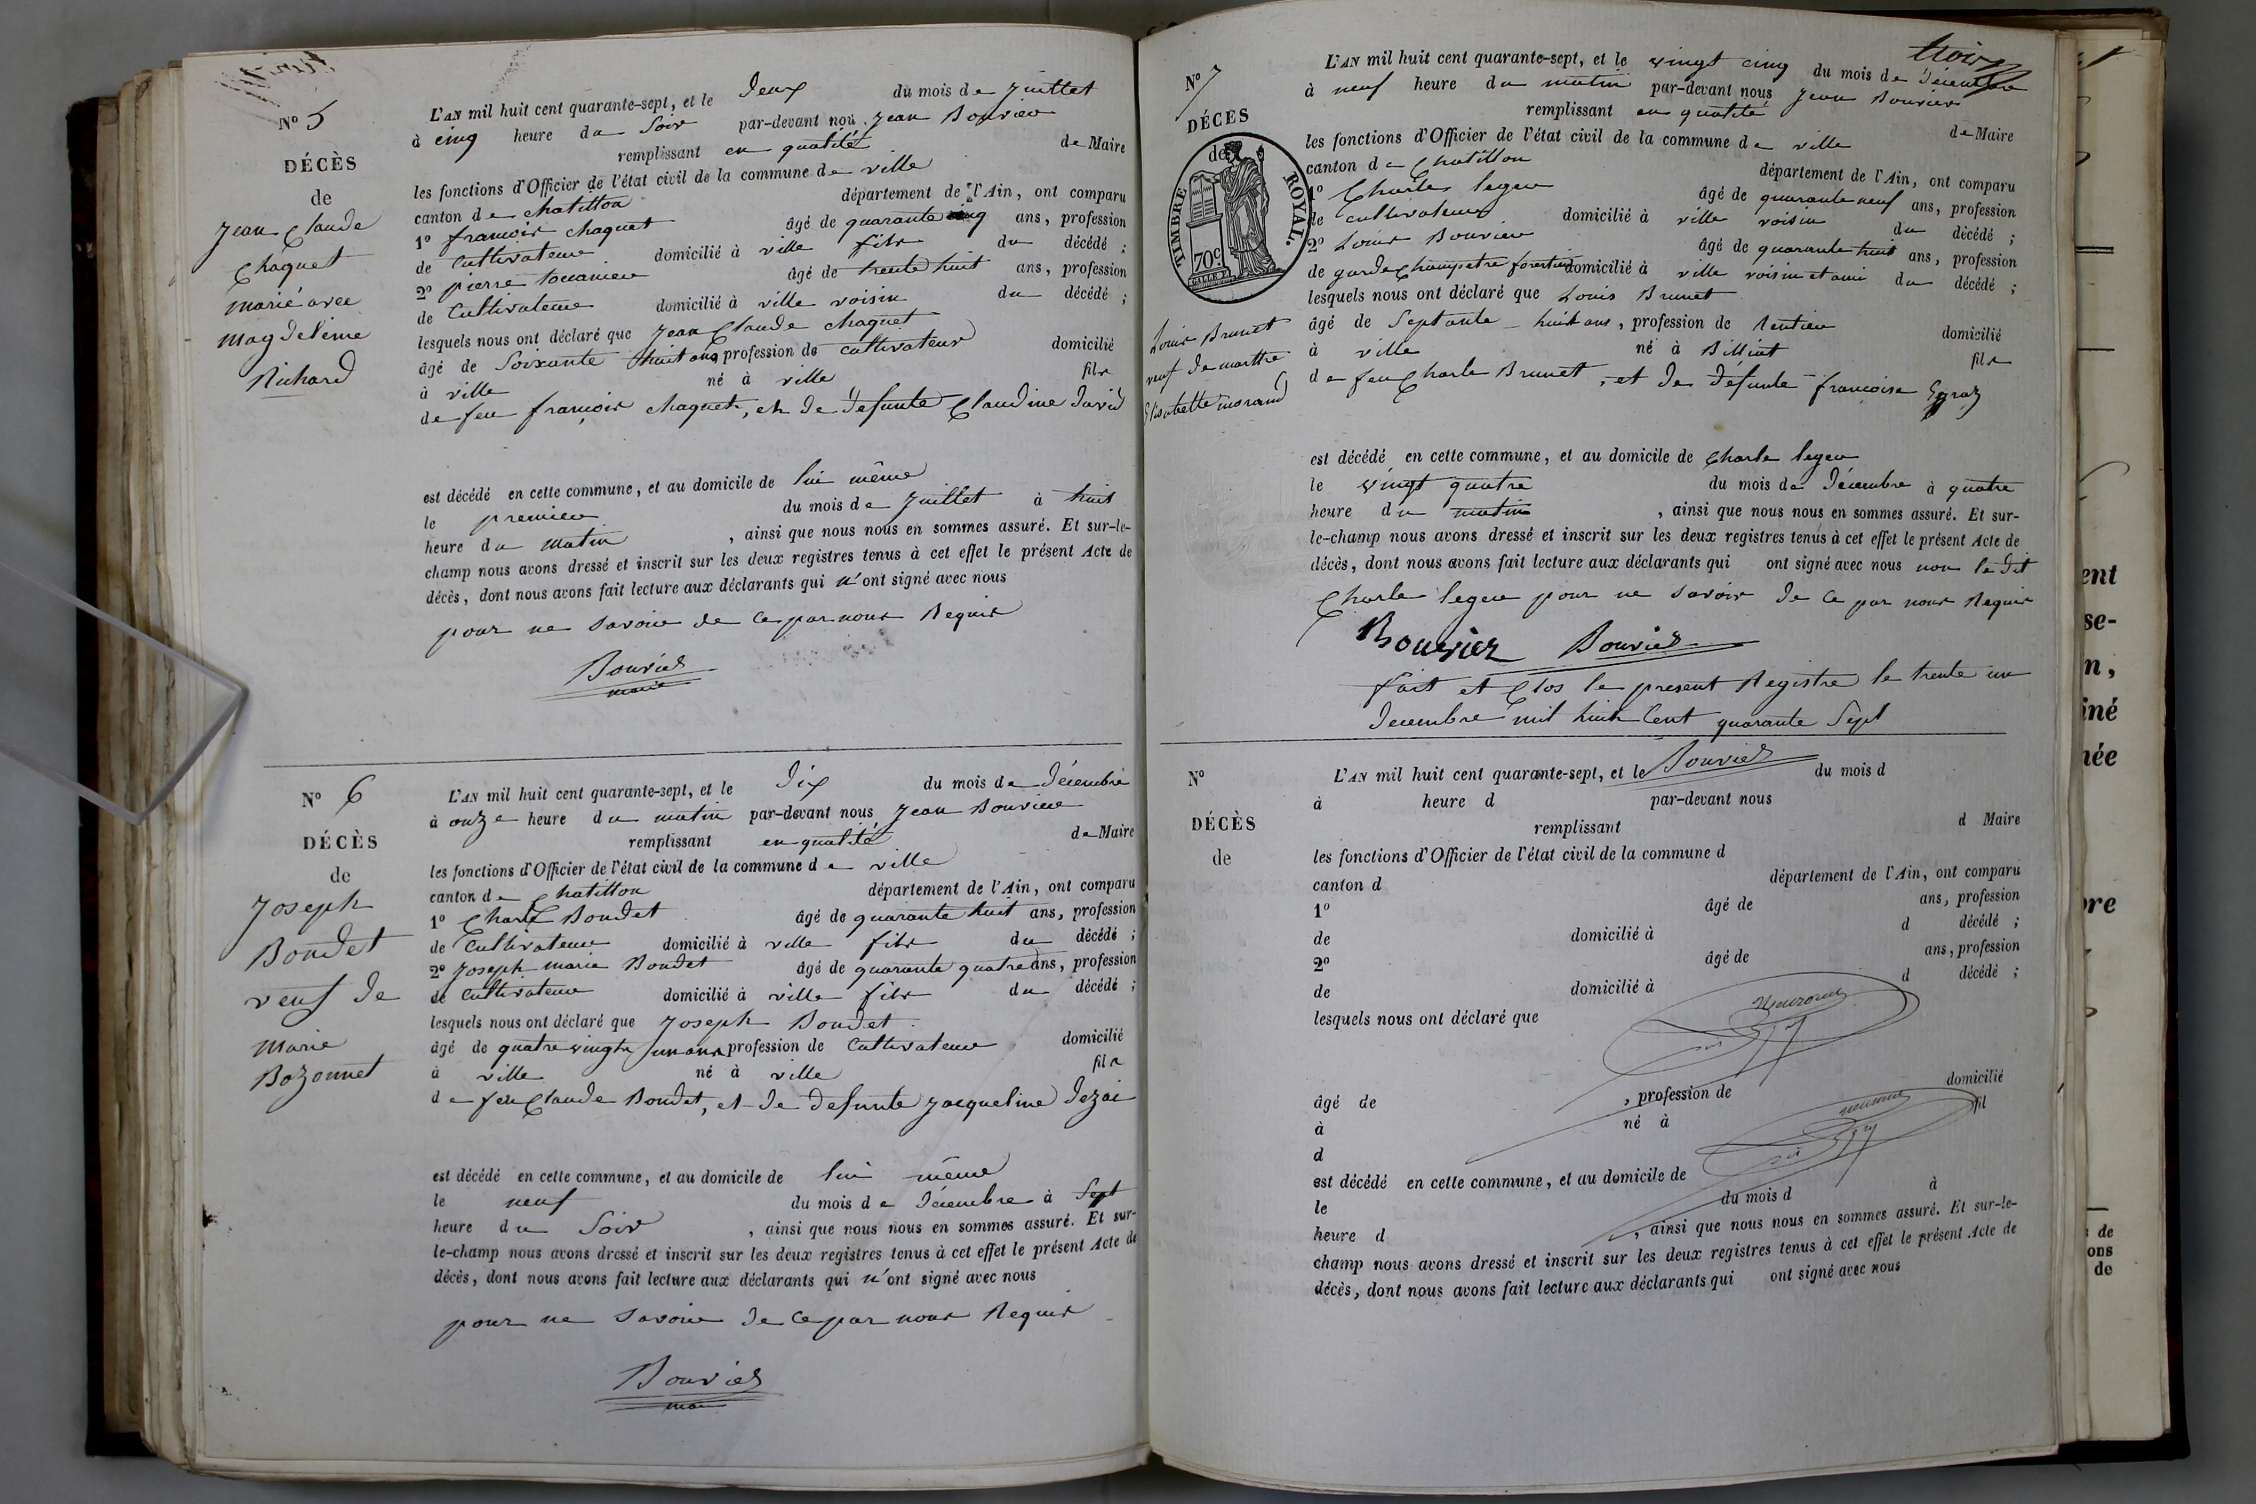 N° 5
DÉCÈS
de
Jean Claude
Chaquet
marié avec
Magdeleine
Richard
L'AN mil huit cent quarante-sept, et le deux du mois de Juillet
à cinq heure du Soir par-devant nou Jean Bouvier
remplissant en qualité de Maire
les fonctions d'Officier de l'état civil de la commune de ville
canton de Chatillon département de l'Ain, ont comparu
1° françois Chaquet âgé de quarante cinq ans, profession
de Cultivateur domicilié à ville fils du décédé ;
2° pierre âgé de trente huit ans, profession
de Cultivateur domicilié à ville voisin du décédé ;
lesquels nous ont déclaré que Jean Claude Chaquet
âgé de Soixante huit ans, profession de Cultivateur domicilié
à ville né à ville fils
de feu françois Chaquet, et de défunte Claudine David
est décédé en cette commune, et au domicile de lui même
le premier du mois de Juillet à huit
heure du Matin , ainsi que nous nous en sommes assuré. Et sur-le-
champ nous avons dressé et inscrit sur les deux registres tenus à cet effet le présent Acte de
décès, dont nous avons fait lecture aux déclarants qui n'ont signé avec nous
pour ne savoir de ce par nous Requis
Bouvier
maire
N° 6
DÉCÈS
de
Joseph
Boudet
veuf de
Marie
Bozonnet
L'AN mil huit cent quarante-sept, et le Dix du mois de Décembre
à onze heure du matin par-devant nous Jean Bouvier
remplissant en qualité de Maire
les fonctions d'Officier de l'état civil de la commune de ville
canton de Chatillon département de l'Ain, ont comparu
1° Charle Boudet âgé de quarante huit ans, profession
de Cultivateur domicilié à ville fils du décédé ;
2° Joseph marie Boudet âgé de quarante quatre ans, profession
de Cultivateur domicilié à ville fils du décédé ;
lesquels nous ont déclaré que Joseph Boudet
âgé de quatre vingts un ans profession de Cultivateur domicilié
à ville né à ville fils
de feu Claude Boudet, et de defunte Jacqueline Dezai
est décédé en cette commune, et au domicile de lui même
le neuf du mois de Décembre à Sept
heure du Soir , ainsi que nous nous en sommes assuré. Et sur-
le-champ nous avons dressé et inscrit sur les deux registres tenus à cet effet le présent Acte de
décès, dont nous avons fait lecture aux déclarants qui n'ont signé avec nous
pour ne savoir de ce par nous Requis
Bouvier
trois
N° 7
DÉCÈS
de
TIMBRE ROYAL.
70c
Louis Brunet
veuf de marthe
Elisabette morand
L'AN mil huit cent quarante-sept, et le vingt cinq du mois de Décembre
à neuf heure du matin par-devant nous Jean Bouvier
remplissant en qualité de Maire
les fonctions d'Officier de l'état civil de la commune de ville
canton de Chatillon département de l'Ain, ont comparu
1° Charles leger âgé de quarante neuf ans, profession
de cultivateur domicilié à ville voisin du décédé ;
2° Louis Bouvier âgé de quarante huit ans, profession
de garde Champetre forestier domicilié à ville voisin et ami du décédé ;
lesquels nous ont déclaré que Louis Brunet
âgé de Septante huit ans, profession de Rentier domicilié
à ville né à Billiat fils
de feu Charle Brunet, et de défunte françoise
est décédé en cette commune, et au domicile de Charle leger
le vingt quatre du mois de Décembre à quatre
heure du matin , ainsi que nous nous en sommes assuré. Et sur-
le-champ nous avons dressé et inscrit sur les deux registres tenus à cet effet le présent Acte de
décès, dont nous avons fait lecture aux déclarants qui ont signé avec nous non le dit
Charle leger pour ne savoir de ce par nous Requis
Bouvier Bouvier
fait et Clos le present Registre le trente un
Decembre mil huit Cent quarante Sept
Bouvier
N°
DÉCÈS
de
L'AN mil huit cent quarante-sept, et le du mois d
à heure d par-devant nous
remplissant d Maire
les fonctions d'Officier de l'état civil de la commune d
canton d département de l'Ain, ont comparu
1° âgé de ans, profession
de domicilié à d décédé ;
2° âgé de ans, profession
de domicilié à d décédé ;
lesquels nous ont déclaré que
âgé de , profession de domicilié
à né à fil
d
est décédé en cette commune, et au domicile de
le du mois d à
heure d , ainsi que nous nous en sommes assuré. Et sur-le-
champ nous avons dressé et inscrit sur les deux registres tenus à cet effet le présent Acte de
décès, dont nous avons fait lecture aux déclarants qui ont signé avec nous